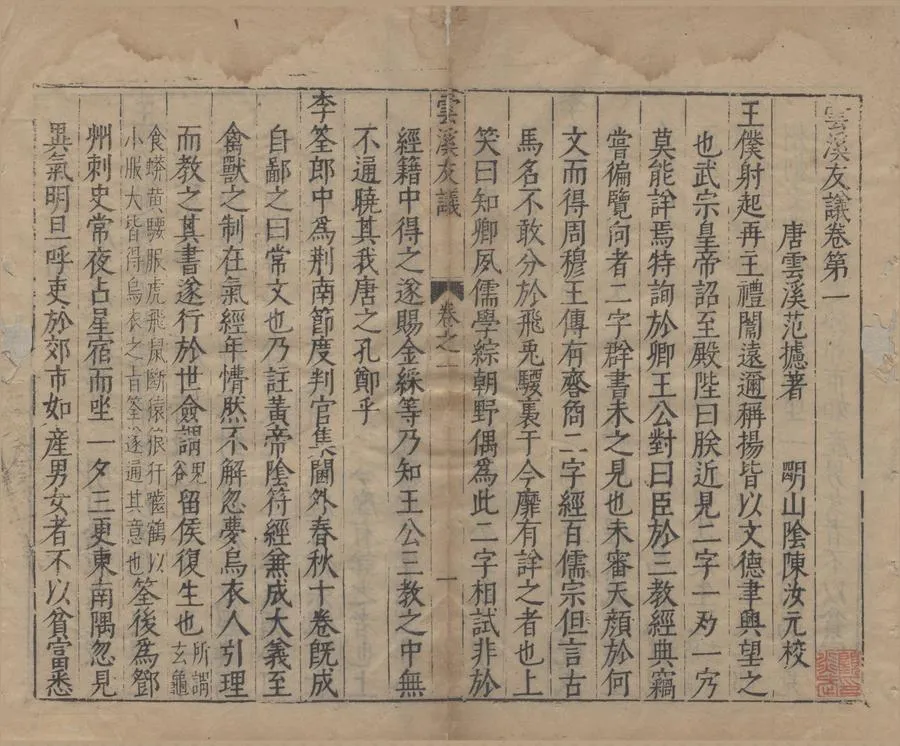 雲溪友議卷第一
唐雲溪范攄著 明山陰陳汝元校
王僕射起再主禮闈遠邇稱揚皆以文德聿興望之
也武宗皇帝詔至殿陛曰朕近見二字一 一
莫能詳焉特詢於卿王公對曰臣於三教經典竊
嘗徧覽向者二字群書未之見也未審天顏於何
文而得周穆王傳有 二字經百儒宗但言古
馬名不敢分於飛兎騕褭于今靡有詳之者也上
笑曰知卿夙儒學綜朝野偶為此二字相試非於
雲溪友議 卷之一 一
經籍中得之遂賜金綵等乃知王公三教之中無
不通曉其我唐之孔鄭乎
李筌郎中為荆南節度判官集閫外春秋十卷既成
自鄙之曰常文也乃註黃帝陰符經兼成大義至
禽獸之制在氣經年懵然不解忽夢烏衣人引理
而教之其書遂行於世僉謂鬼谷留侯復生也所謂玄龜
食蟒黃腰服虎飛鼠斷猿狼犴嚙鶴以小服大皆得烏衣之旨筌遂通其意也筌後為鄧
州刺史常夜占星宿而坐一夕三更東南隅忽見
異氣明旦呼吏於郊市如產男女者不以貧富悉